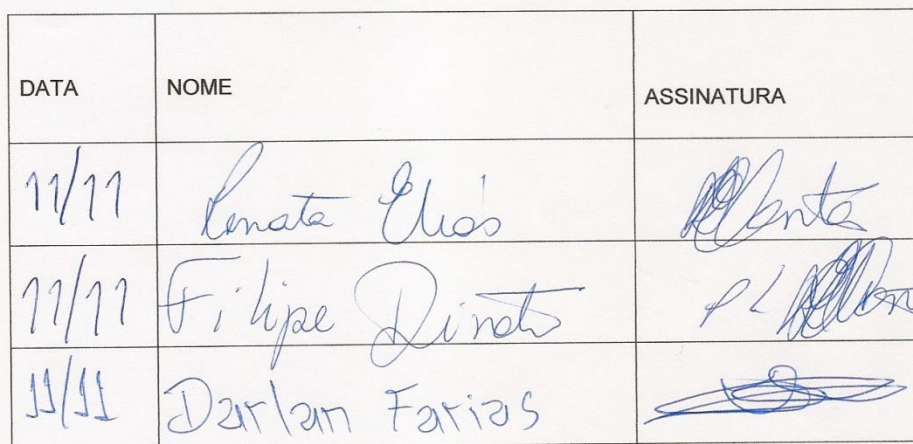 DATA NOME ASSINATURA
11/11 Renata Elias
11/11 Filipe Dinato
11/11 Darlan Farias